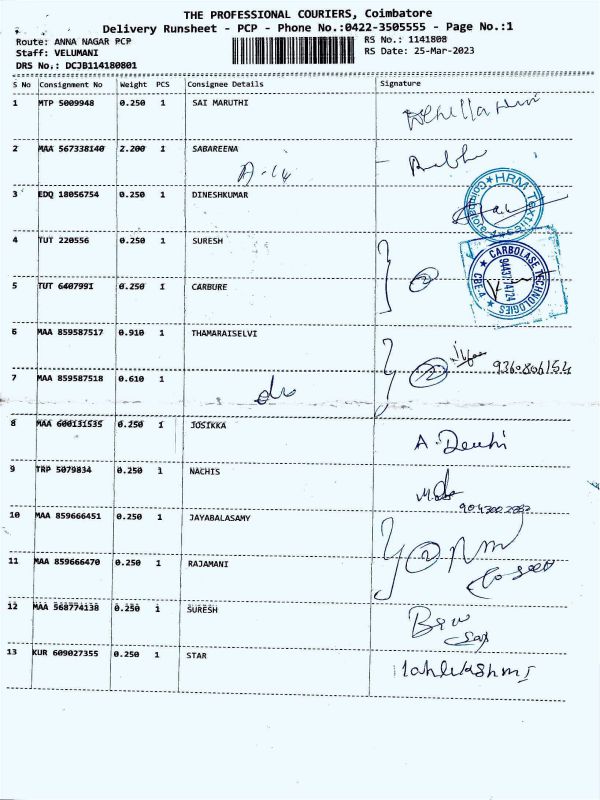 THE PROFESSIONAL COURIERS, Coimbatore
Delivery Runsheet - PCP - Phone No.:0422-3505555 - Page No.:1
Route: ANNA NAGAR PCP
Staff: VELUMANI
DRS No.: DCJB114180801
RS No.: 1141808
RS Date: 25-Mar-2023
S No Consignment No Weight PCS Consignee Details Signature
1 MTP 5009948 0.250 1 SAI MARUTHI
2 MAA 567338140 2.200 1 SABAREENA
3 EDQ 18056754 0.250 1 DINESHKUMAR
HRM Textiles Coimbatore
4 TUT 220556 0.250 1 SURESH
2
CARBOLASE TECHNOLOGIES
5 TUT 6407991 0.250 1 CARBURE
6 MAA 859587517 0.910 1 THAMARAISELVI
2
7 MAA 859587518 0.610 1
do
8 MAA 600131535 0.250 1 JOSIKKA
A. Devhi
9 TRP 5079834 0.250 1 NACHIS
10 MAA 859666451 0.250 1 JAYABALASAMY
2
11 MAA 859666470 0.250 1 RAJAMANI
12 MAA 568774138 0.250 1 SURESH
13 KUR 609027355 0.250 1 STAR